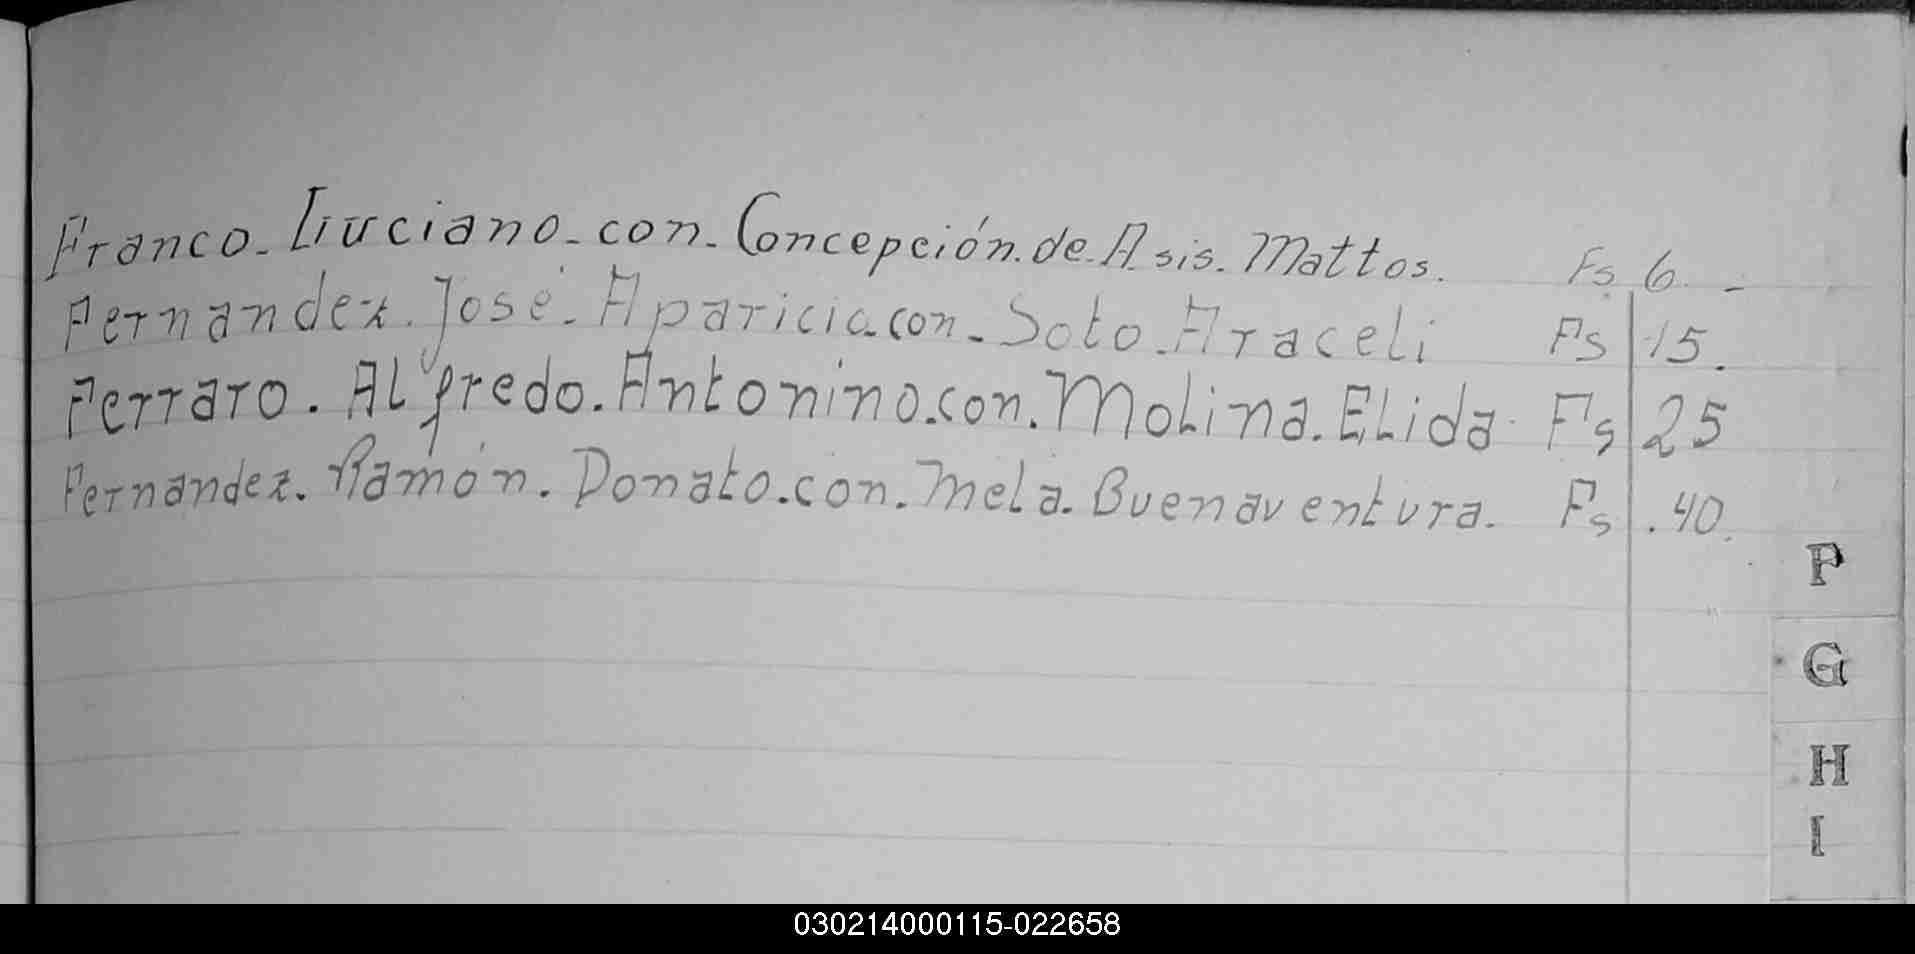 Franco. Luciano. con. Concepción. de. Asis. Mattos. Fs 6. -
Fernandez. José. Aparicio. con. Soto. Araceli Fs 15.
Ferraro. ALfredo. Antonino. con. MoLina. ELida. Fs 25
Fernandez. Ramón. Donato. con. MeLa. Buenaventura. Fs . 40.
F
G
H
I
030214000115-022658